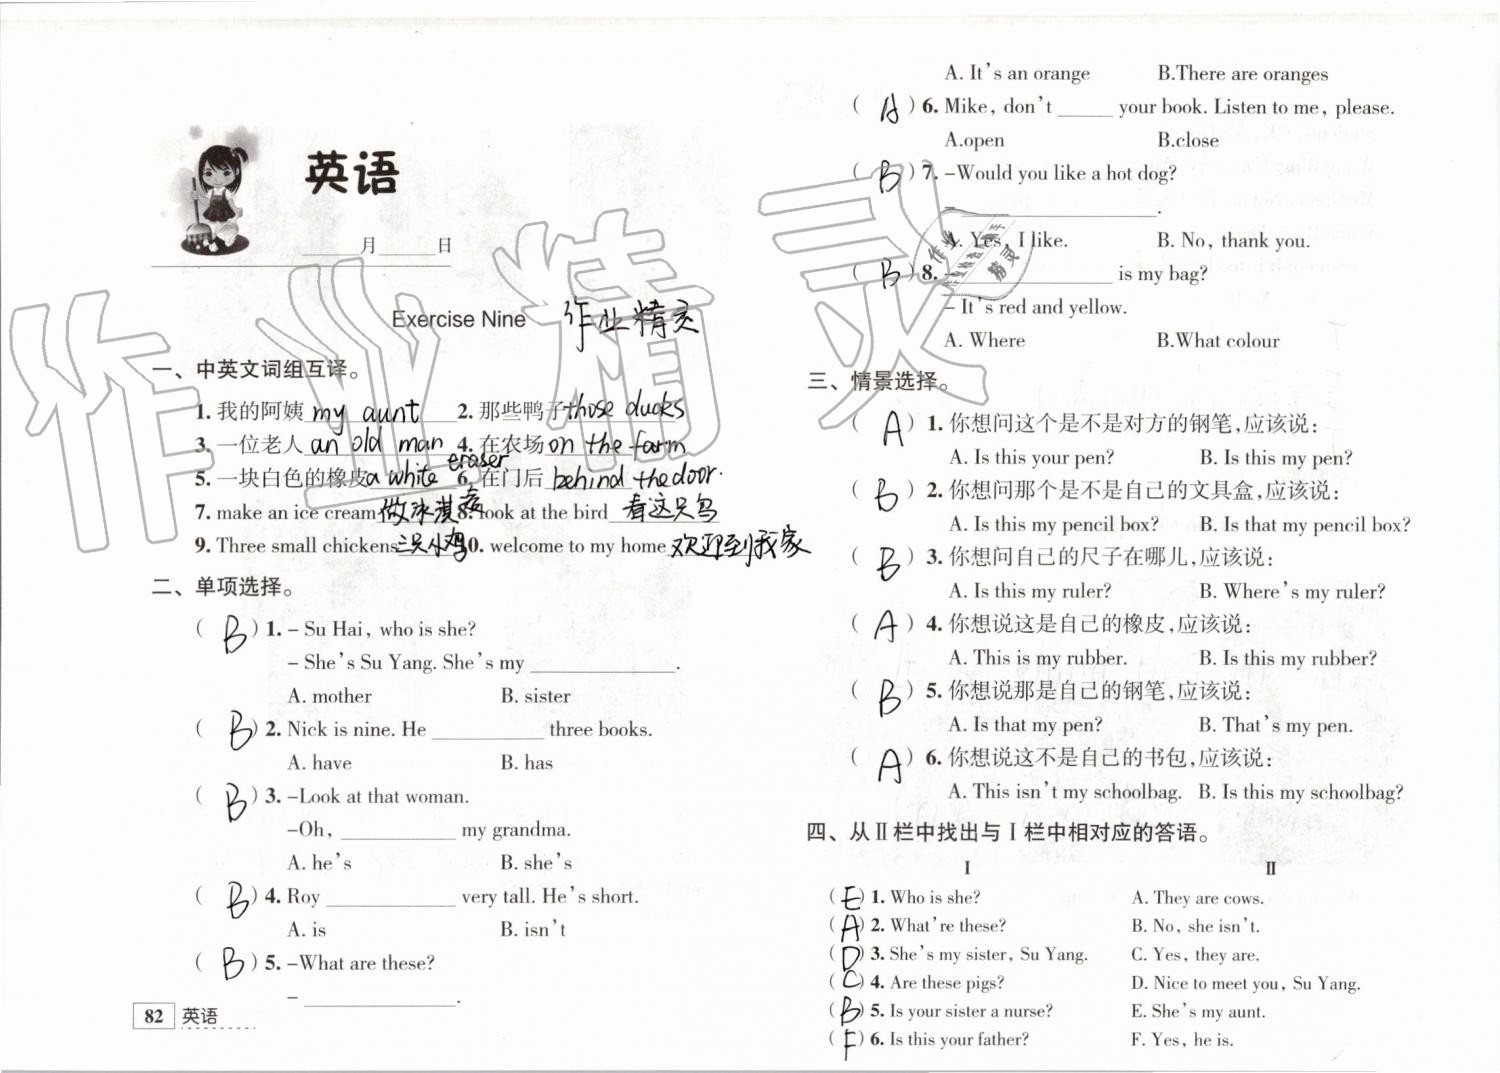 英语
月 日
Exercise Nine 作业精灵
一、中英文词组互译。
1. 我的阿姨 my aunt 2. 那些鸭子 those ducks
3. 一位老人 an old man 4. 在农场 on the farm
5. 一块白色的橡皮 a white eraser 6. 在门后 behind the door.
7. make an ice cream 做冰淇淋 8. look at the bird 看这只鸟
9. Three small chickens 三只小鸡 10. welcome to my home 欢迎到我家
二、单项选择。
( B ) 1. – Su Hai, who is she?
– She's Su Yang. She's my ______ .
A. mother B. sister
( B ) 2. Nick is nine. He ______ three books.
A. have B. has
( B ) 3. –Look at that woman.
–Oh, ______ my grandma.
A. he's B. she's
( B ) 4. Roy ______ very tall. He's short.
A. is B. isn't
( B ) 5. –What are these?
– ______ .
82 英语
A. It's an orange B.There are oranges
( A ) 6. Mike, don't ______ your book. Listen to me, please.
A.open B.close
( B ) 7. –Would you like a hot dog?
– ______ .
A. Yes, I like. B. No, thank you.
( B ) 8. – ______ is my bag?
– It's red and yellow.
A. Where B.What colour
三、情景选择。
( A ) 1. 你想问这个是不是对方的钢笔,应该说:
A. Is this your pen? B. Is this my pen?
( B ) 2. 你想问那个是不是自己的文具盒,应该说:
A. Is this my pencil box? B. Is that my pencil box?
( B ) 3. 你想问自己的尺子在哪儿,应该说:
A. Is this my ruler? B. Where's my ruler?
( A ) 4. 你想说这是自己的橡皮,应该说:
A. This is my rubber. B. Is this my rubber?
( B ) 5. 你想说那是自己的钢笔,应该说:
A. Is that my pen? B. That's my pen.
( A ) 6. 你想说这不是自己的书包,应该说:
A. This isn't my schoolbag. B. Is this my schoolbag?
四、从Ⅱ栏中找出与Ⅰ栏中相对应的答语。
Ⅰ Ⅱ
( E ) 1. Who is she? A. They are cows.
( A ) 2. What're these? B. No, she isn't.
( D ) 3. She's my sister, Su Yang. C. Yes, they are.
( C ) 4. Are these pigs? D. Nice to meet you, Su Yang.
( B ) 5. Is your sister a nurse? E. She's my aunt.
( F ) 6. Is this your father? F. Yes, he is.
作业精灵